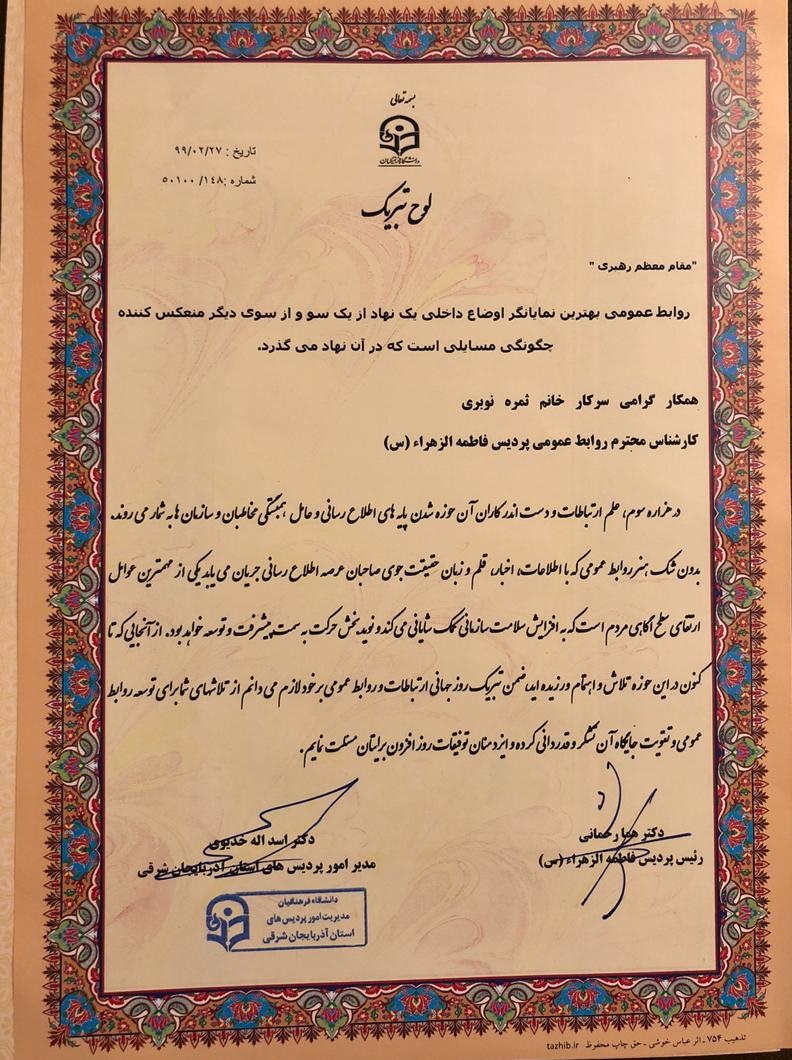 بسمه تعالی
دانشگاه فرهنگیان
تاریخ : ۹۹/۰۲/۲۷
شماره :۵۰۱۰۰ /۱۴۸
لوح تبریک
"مقام معظم رهبری "
روابط عمومی بهترین نمایانگر اوضاع داخلی یک نهاد از یک سو و از سوی دیگر منعکس کننده
چگونگی مسایلی است که در آن نهاد می گذرد.
همکار گرامی سرکار خانم ثمره نوبری
کارشناس محترم روابط عمومی پردیس فاطمه الزهراء (س)
در هزاره سوم، علم ارتباطات و دست اندرکاران آن حوزه شدن پایه های اطلاع رسانی و عامل همبستگی مخاطبان و سازمان ها به شمار می روند.
بدون شک هنر روابط عمومی که با اطلاعات، اخبار، قلم و زبان حقیقت جوی صاحبان عرصه اطلاع رسانی جریان می یابد یکی از مهمترین عوامل
ارتقای سطح آگاهی مردم است که به افزایش سلامت سازمانی کمک شایانی می کند و نوید بخش حرکت به سمت پیشرفت و توسعه خواهد بود. از آنجایی که تا
کنون در این حوزه تلاش و اهتمام ورزیده اید، ضمن تبریک روز جهانی ارتباطات و روابط عمومی بر خود لازم می دانم از تلاشهای شما برای توسعه روابط
عمومی و تقویت جایگاه آن تشکر و قدردانی کرده و ایزد منان توفیقات روز افزون برایتان مسئلت نمایم.
دکتر هما رحمانی
رئیس پردیس فاطمه الزهراء (س)
دکتر اسد اله خدیوی
مدیر امور پردیس های استان آذربایجان شرقی
دانشگاه فرهنگیان
مدیریت امور پردیس های
استان آذربایجان شرقی
تذهیب ۷۵۴ ـ اثر عباس خوشی ـ حق چاپ محفوظ tazhib.ir